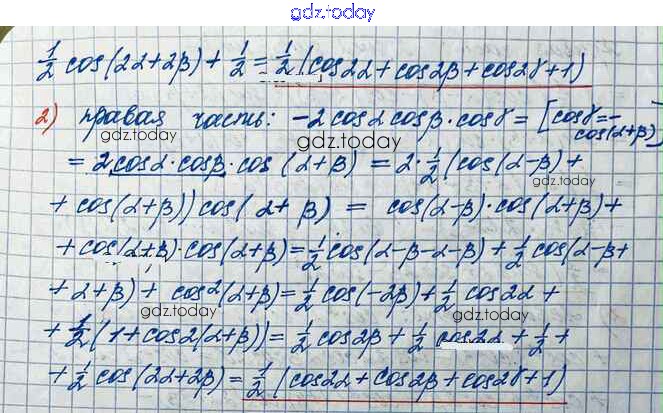 gdz.today
½ cos(2α+2β) + ½ = ½ (cos2α + cos2β + cos2γ + 1)
gdz.today
2) правая часть: -2 cosα cosβ · cosγ = [cosγ = -cos(α+β)]
gdz.today
= 2 cosα · cosβ · cos(α+β) = 2 · ½ (cos(α-β) +
gdz.today
+ cos(α+β)) cos(α+β) = cos(α-β) · cos(α+β) +
+ cos(α+β) · cos(α+β) = ½ cos(α-β-α-β) + ½ cos(α-β+
gdz.today
+ α+β) + cos²(α+β) = ½ cos(-2β) + ½ cos2α +
gdz.today
+ ½ (1 + cos2(α+β)) = ½ cos2β + ½ cos2α + ½ +
+ ½ cos(2α+2β) = ½ (cos2α + cos2β + cos2γ + 1)
gdz.today